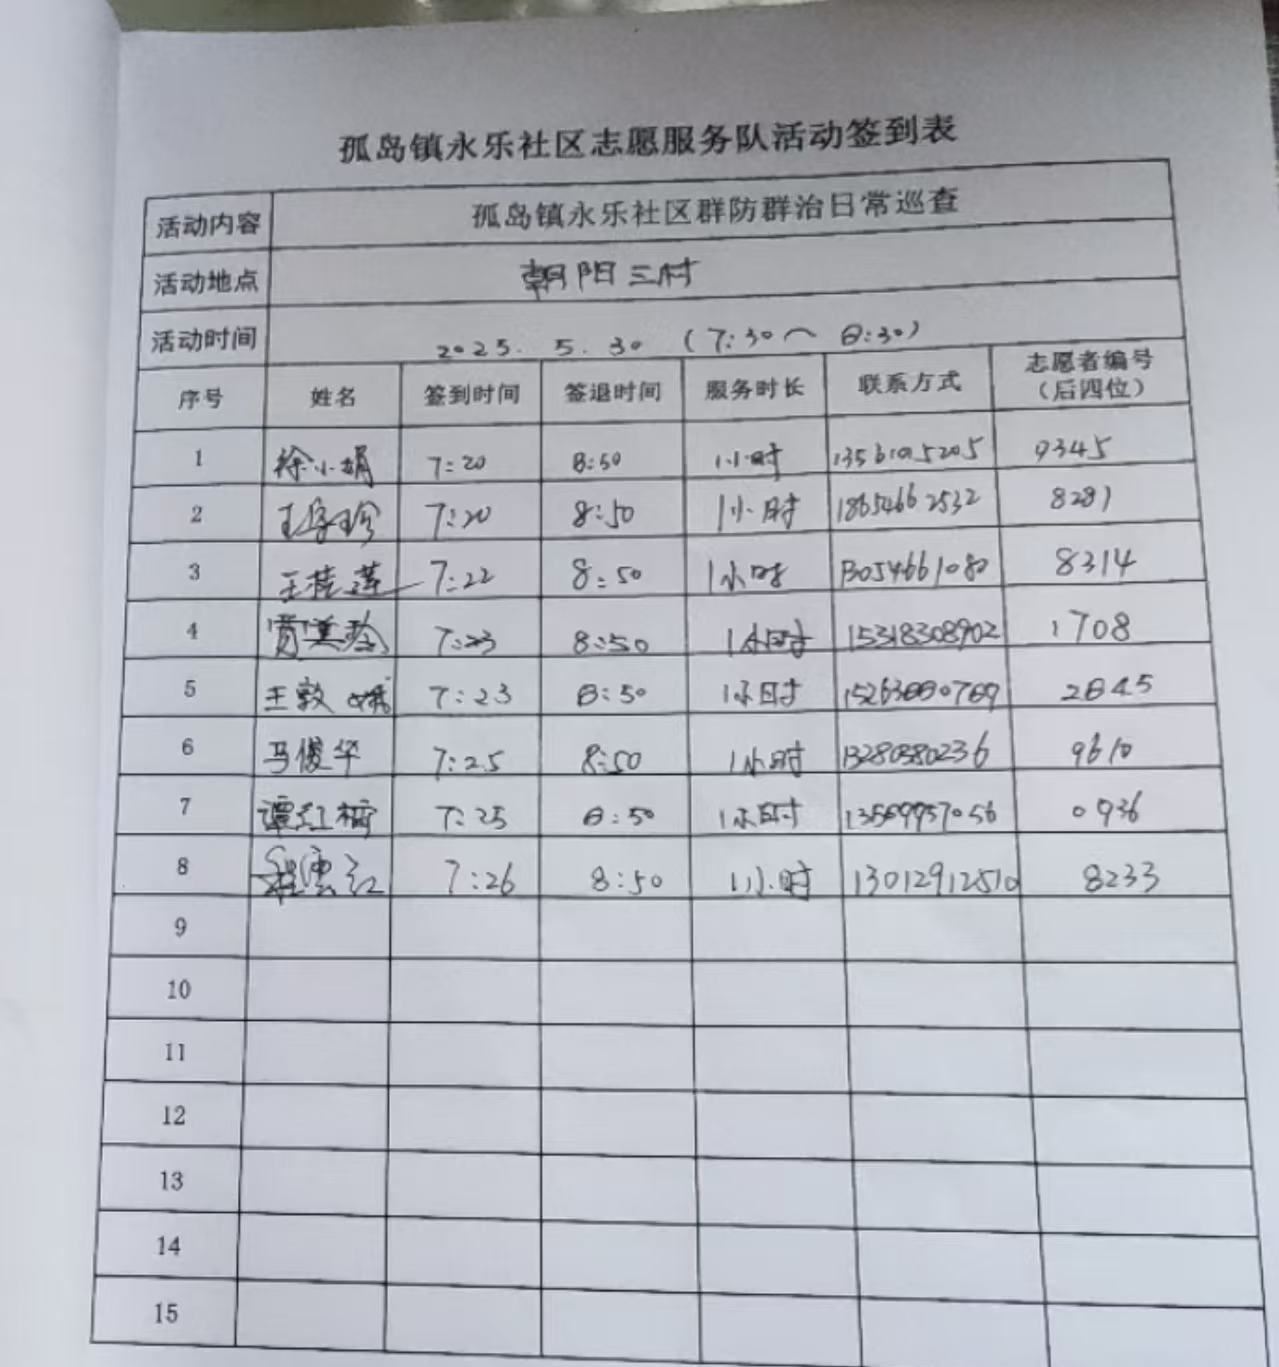 孤岛镇永乐社区志愿服务队活动签到表
活动内容 孤岛镇永乐社区群防群治日常巡查
活动地点 朝阳三村
活动时间 2025. 5. 30 (7:30～8:30)
序号 姓名 签到时间 签退时间 服务时长 联系方式 志愿者编号(后四位)
1 徐小娟 7:20 8:50 1小时 13561095205 9345
2 7:20 8:50 1小时 18654662532 8281
3 王桂莲 7:22 8:50 1小时 13054661080 8314
4 7:23 8:50 1小时 15318308902 1708
5 王敦娥 7:23 8:50 1小时 2845
6 马俊华 7:25 8:50 1小时 13280380236 9610
7 谭红梅 7:25 8:50 1小时 0936
8 7:26 8:50 1小时 13012912510 8233
9
10
11
12
13
14
15